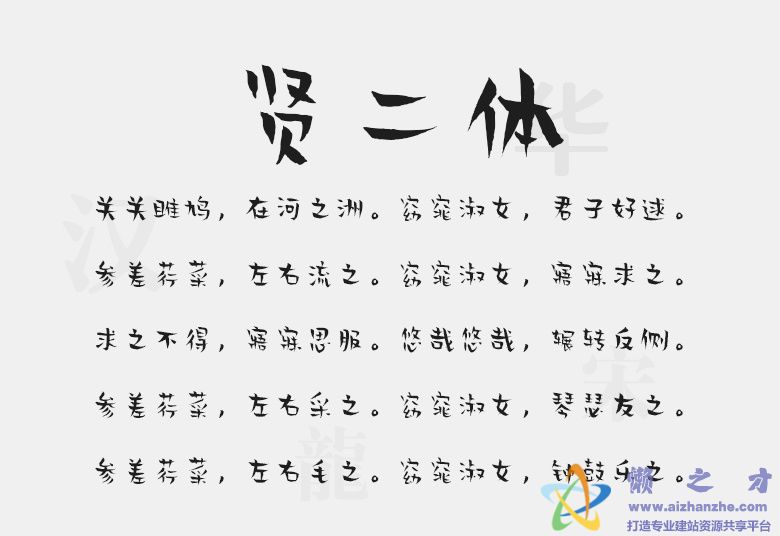 贤二体
关关雎鸠，在河之洲。窈窕淑女，君子好逑。
参差荇菜，左右流之。窈窕淑女，寤寐求之。
求之不得，寤寐思服。悠哉悠哉，辗转反侧。
参差荇菜，左右采之。窈窕淑女，琴瑟友之。
参差荇菜，左右毛之。窈窕淑女，钟鼓乐之。
华
汉
宋
龍
懒之才
www.aizhanzhe.com
打造专业建站资源共享平台